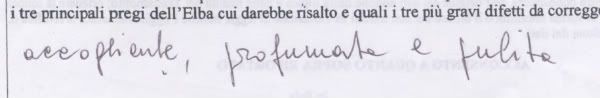 i tre principali pregi dell'Elba cui darebbe risalto e quali i tre più gravi difetti da corregge
accogliente, profumata e pulita